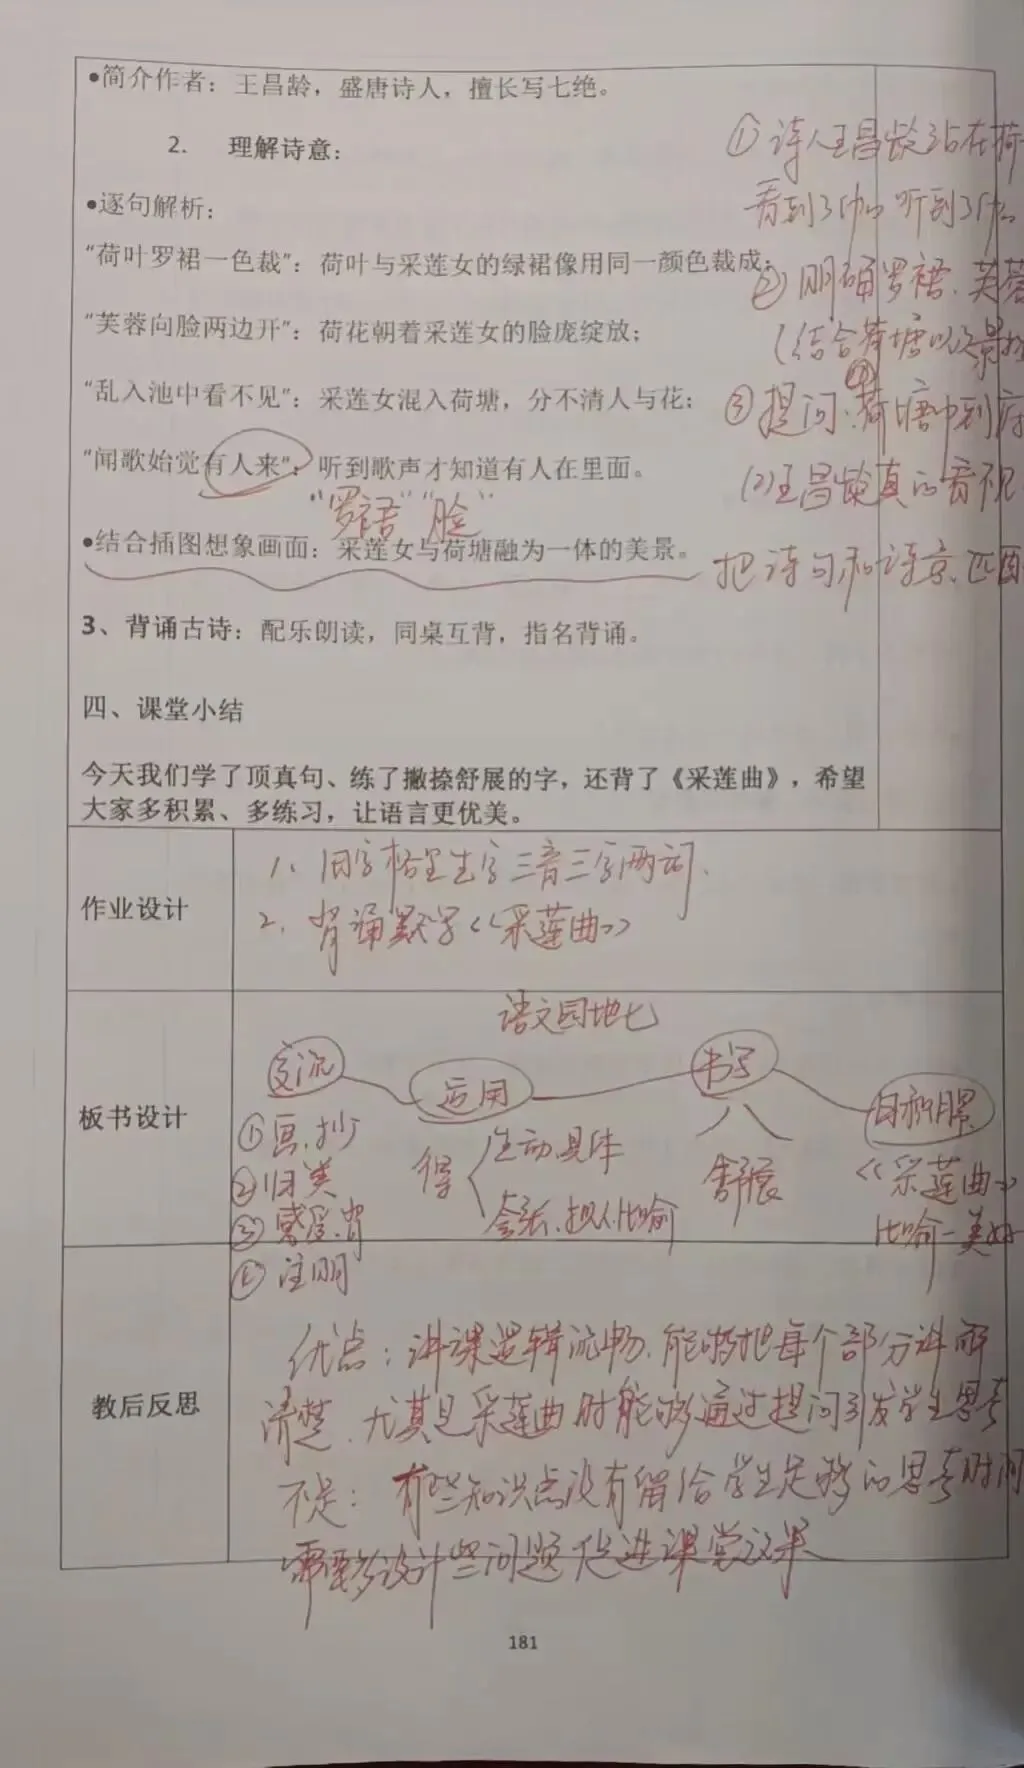 •简介作者：王昌龄，盛唐诗人，擅长写七绝。
2. 理解诗意：
•逐句解析：
“荷叶罗裙一色裁”：荷叶与采莲女的绿裙像用同一颜色裁成；
“芙蓉向脸两边开”：荷花朝着采莲女的脸庞绽放；
“乱入池中看不见”：采莲女混入荷塘，分不清人与花；
“闻歌始觉有人来”：听到歌声才知道有人在里面。
“罗裙”“脸”
•结合插图想象画面：采莲女与荷塘融为一体的美景。
①诗人王昌龄站在荷
看到了什么 听到了什么
②明确罗裙、芙蓉
(结合荷塘
③提问：荷塘中到底
(2)王昌龄真的看不见
把诗句和诗意匹配
3、背诵古诗：配乐朗读，同桌互背，指名背诵。
四、课堂小结
今天我们学了顶真句、练了撇捺舒展的字，还背了《采莲曲》，希望
大家多积累、多练习，让语言更优美。
作业设计
1、田字格里生字三音三字两词.
2、背诵默写《采莲曲》
板书设计
语文园地七
交流
运用
书写
日积月累
①画.抄
②归类
③感受.背
④注明
得
生动具体
夸张.拟人.比喻
八
舒展
《采莲曲》
比喻—美好
教后反思
优点：讲课逻辑流畅.能够把每个部分讲解
清楚.尤其是采莲曲时能够通过提问引发学生思考
不足：有些知识点没有留给学生足够的思考时间
需要多设计些问题促进课堂效果
181